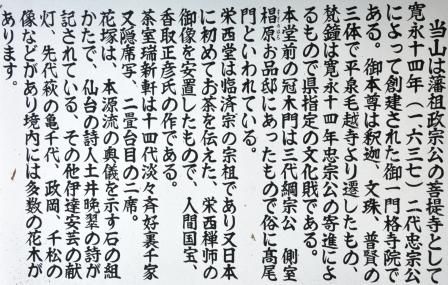 当山は藩祖政宗公の菩提寺として
寛永十四年（一六三七）二代忠宗公
によって創建された御一門格寺院で
ある。御本尊は釈迦、文珠、普賢の
三体で平泉毛越寺より遷したもの、
梵鐘は寛永十四年忠宗公の寄進によ
るもので県指定の文化財である。
本堂前の冠木門は三代綱宗公　側室
椙原お品邸にあったもので俗に高尾
門といわれている。
栄西堂は臨済宗の宗祖であり又日本
に初めてお茶を伝えた、栄西禅師の
御像を安置したもので、人間国宝、
香取正彦氏の作である。
茶室瑞新軒は十四代淡々斉好裏千家
又隠席写、二畳台目の二席。
花塚は、本源流の奥儀を示す石の組
かたで、仙台の詩人土井晩翠の詩が
記されている、その他伊達安芸の献
灯、先代萩の亀千代、政岡、千松の
像などがあり境内には多数の花木が
あります。